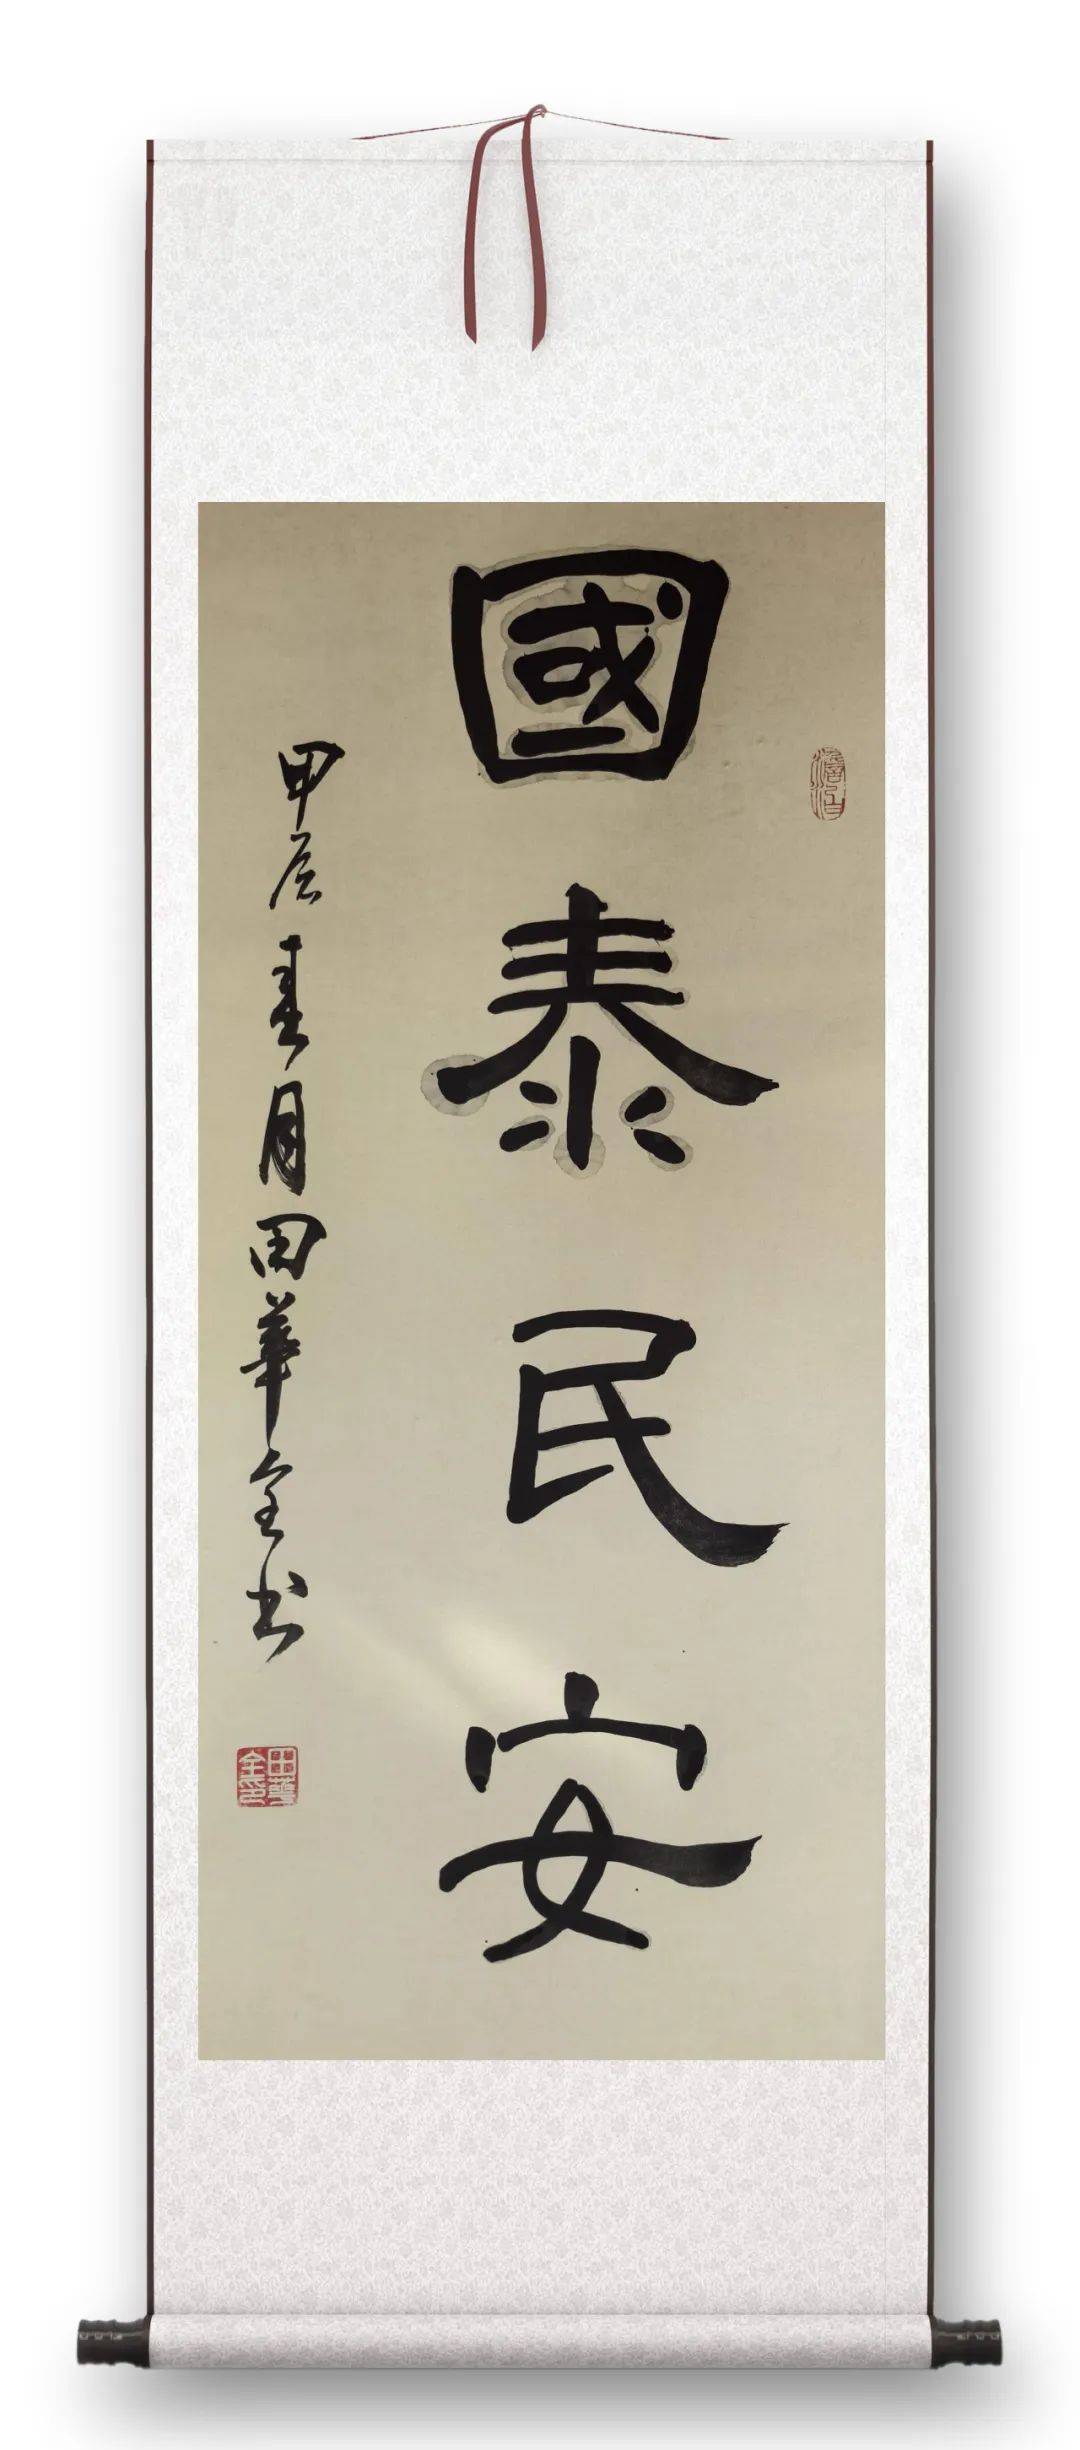 國泰民安
甲辰春月田華全书
田華全印